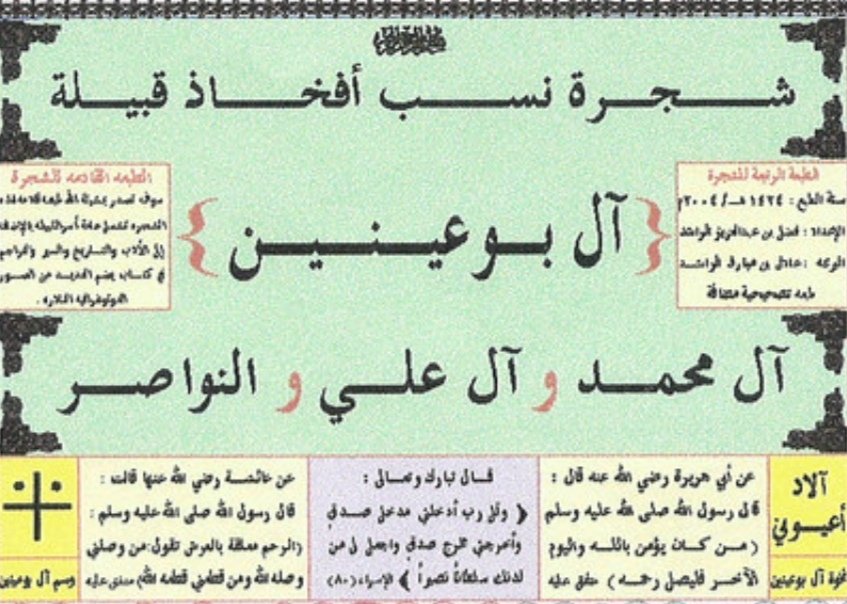 شجرة نسب أفخاذ قبيلة
الطبعة الرابعة للشجرة
سنة الطبع : ١٤٢٤ هـ / ٢٠٠٤م
الإعداد : فضل بن عبدالعزيز الراشد
عادل بن مبارك الراشد
طبعة تصحيحية منقحة
{ آل بوعينين }
الطبعة القادمة للشجرة
سوف تصدر بمشيئة الله طبعة قادمة لهذه
إلى الآداب والتاريخ والسير والتراجم
في كتاب يضم العديد من الصور
الفوتوغرافية النادرة .
آل محمد و آل علي و النواصر
آلاد
أعيوني
نخوة آل بوعينين
عن أبي هريرة رضي الله عنه قال :
قال رسول الله صلى الله عليه وسلم
( من كان يؤمن بالله واليوم
الآخر فليصل رحمه ) متفق عليه
قال تبارك وتعالى :
﴿ وقل رب أدخلني مدخل صدق
وأخرجني مخرج صدق واجعل لي من
لدنك سلطانا نصيرا ﴾ الإسراء (٨٠)
عن عائشة رضي الله عنها قالت :
قال رسول الله صلى الله عليه وسلم :
(الرحم معلقة بالعرش تقول:من وصلني
وصله الله ومن قطعني قطعه الله) متفق عليه
وسم آل بوعينين